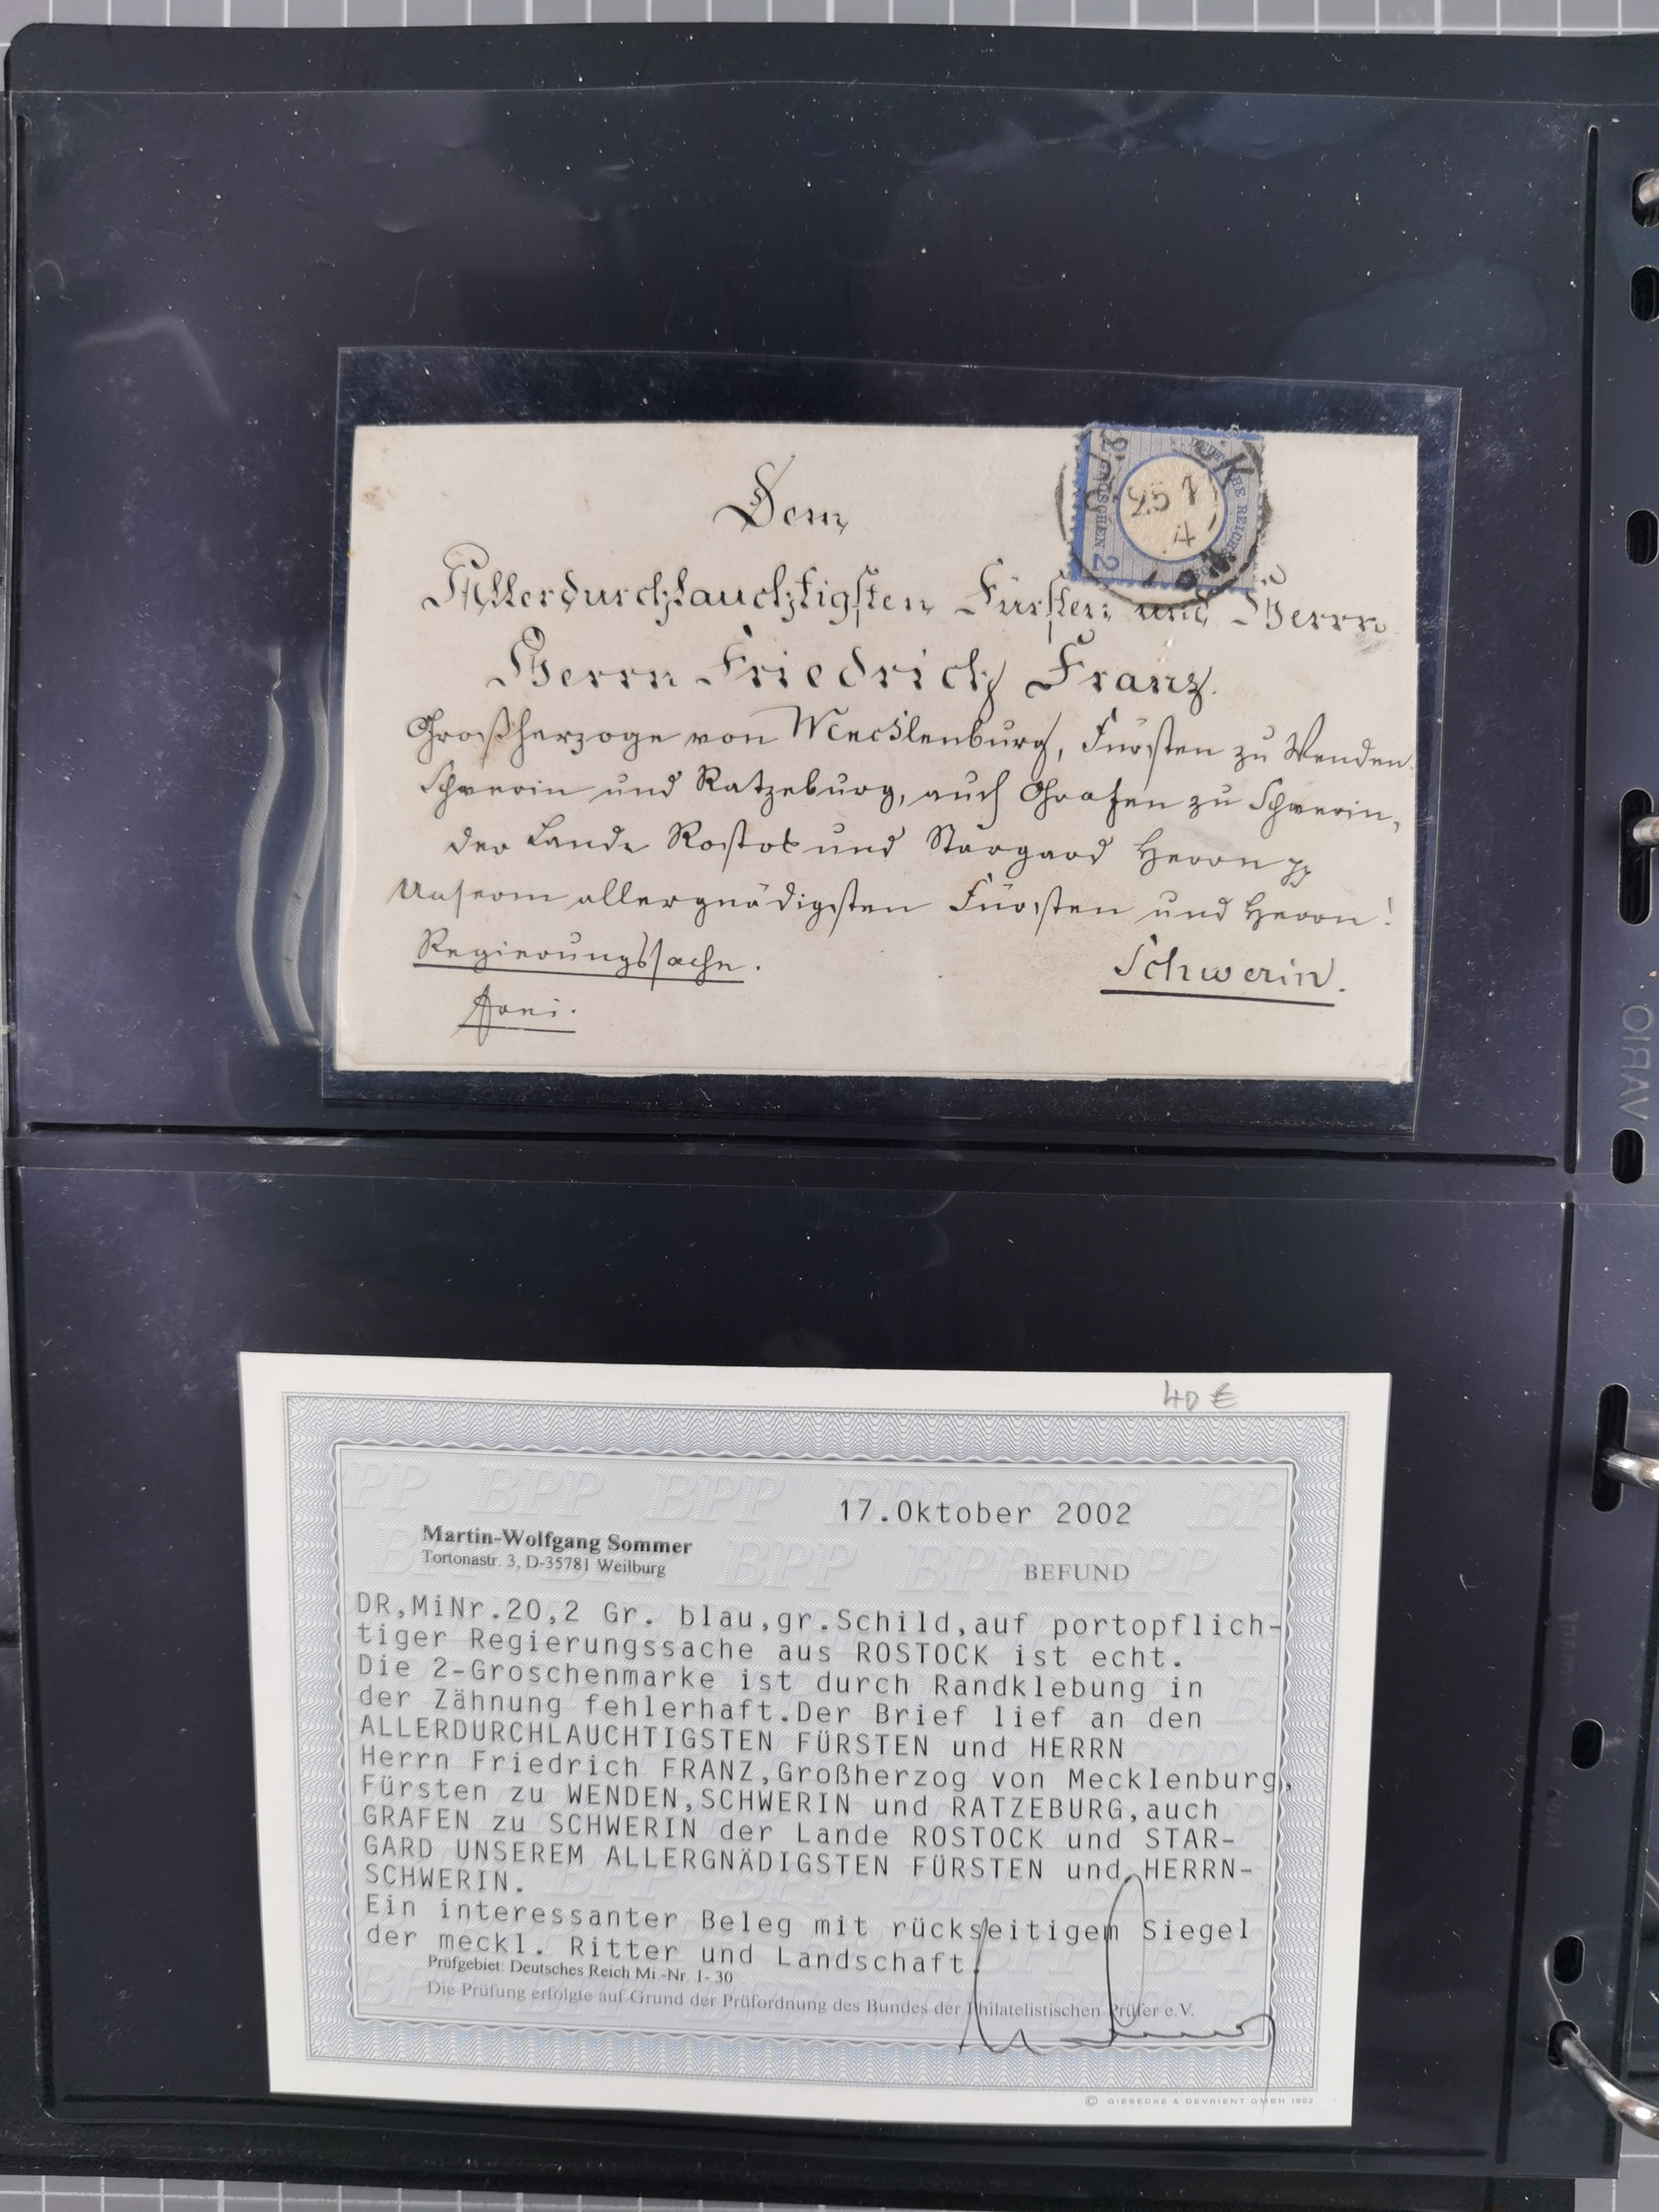 Dem
Allerdurchlauchtigsten Fürsten und Herrn
Herrn Friedrich Franz.
Großherzoge von Mecklenburg, Fürsten zu Wenden
Schwerin und Ratzeburg, auch Grafen zu Schwerin,
der Lande Rostock und Stargard Herrn pp
Unserm allergnädigsten Fürsten und Herrn!
Regierungssache.
Schwerin.
frei.
2 GROSCHEN 2
25 7
40 €
17.Oktober 2002
Martin-Wolfgang Sommer
Tortonastr. 3, D-35781 Weilburg
BEFUND
DR,MiNr.20,2 Gr. blau,gr.Schild,auf portopflich-
tiger Regierungssache aus ROSTOCK ist echt.
Die 2-Groschenmarke ist durch Randklebung in
der Zähnung fehlerhaft.Der Brief lief an den
ALLERDURCHLAUCHTIGSTEN FÜRSTEN und HERRN
Herrn Friedrich FRANZ,Großherzog von Mecklenburg,
Fürsten zu WENDEN,SCHWERIN und RATZEBURG,auch
GRAFEN zu SCHWERIN der Lande ROSTOCK und STAR-
GARD UNSEREM ALLERGNÄDIGSTEN FÜRSTEN und HERRN-
SCHWERIN.
Ein interessanter Beleg mit rückseitigem Siegel
der meckl. Ritter und Landschaft.
Prüfgebiet: Deutsches Reich Mi.-Nr. 1-30
Die Prüfung erfolgte auf Grund der Prüfordnung des Bundes der Philatelistischen Prüfer e.V.
© GIESECKE & DEVRIENT GMBH 1992
VARIO